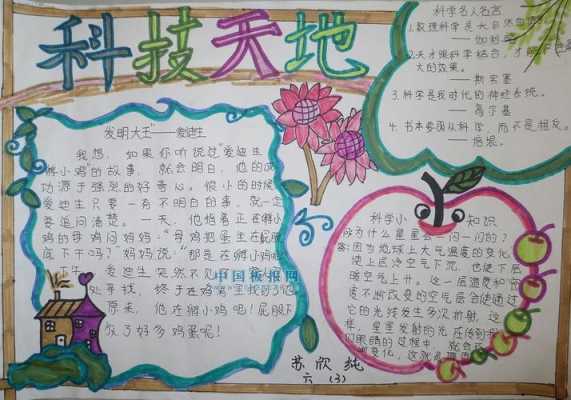 科技天地
发明大王"——爱迪生
我想，如果你听说过"爱迪生
孵小鸡"的故事，就会明白，他的成
功源于强烈的好奇心。很小的时候
爱迪生只要一有不明白的事，就一定
要追问清楚。一天，他指着正在孵小
鸡的母鸡问妈妈："母鸡把蛋坐在屁股
底下干吗？"妈妈说："那是在孵小鸡
爱迪生突然不见了
处寻找，终于在鸡窝里找到了他
原来，他在孵小鸡呢！屁股下
放了好多鸡蛋呢！
中国板报网
苏欣纯
六（3）
科学名人名言
1.数理科学是大自然
——伽利略
2.天才跟科学结合，才能
大的效果。
——斯宾塞
3.科学是我时代的神经系统。
——高尔基
4.书本要随从科学，而不是相反。
——培根。
科学小知识
问为什么星星会一闪一闪的？
答：因为地球上大气温度的变化，
使上层冷空气下沉，也使下层
暖空气上升。这一层温度和密
度不断改变的空气层会使通过
它的光线发生多次折射，这
样，星星发射的光在传到
们眼睛的过程中，就会
变化，这就